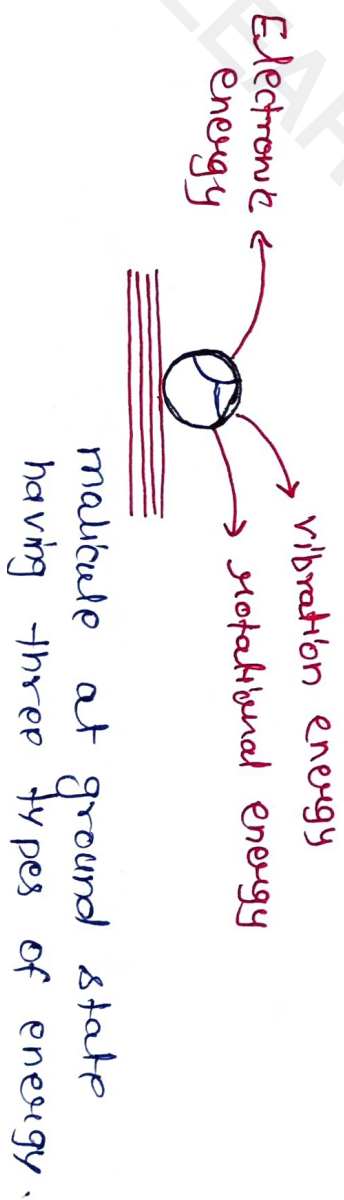 Electronic
energy
vibration energy
rotational energy
malicule at ground state
having three types of energy.